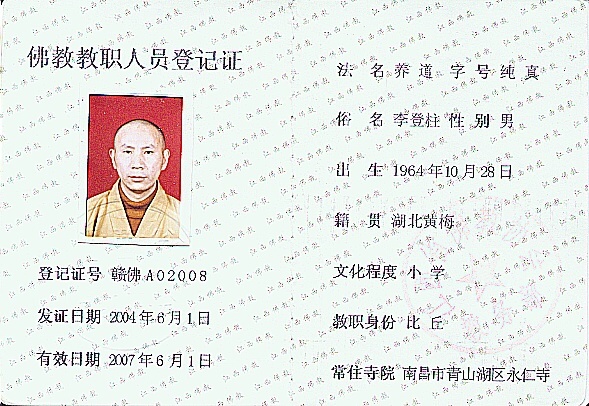 佛教教职人员登记证
登记证号 赣佛A02008
发证日期 2004年6月1日
有效日期 2007年6月1日
法名 养道 字号 纯真
俗名 李登柱 性别 男
出生 1964年10月28日
籍贯 湖北黄梅
文化程度 小学
教职身份 比丘
常住寺院 南昌市青山湖区永仁寺